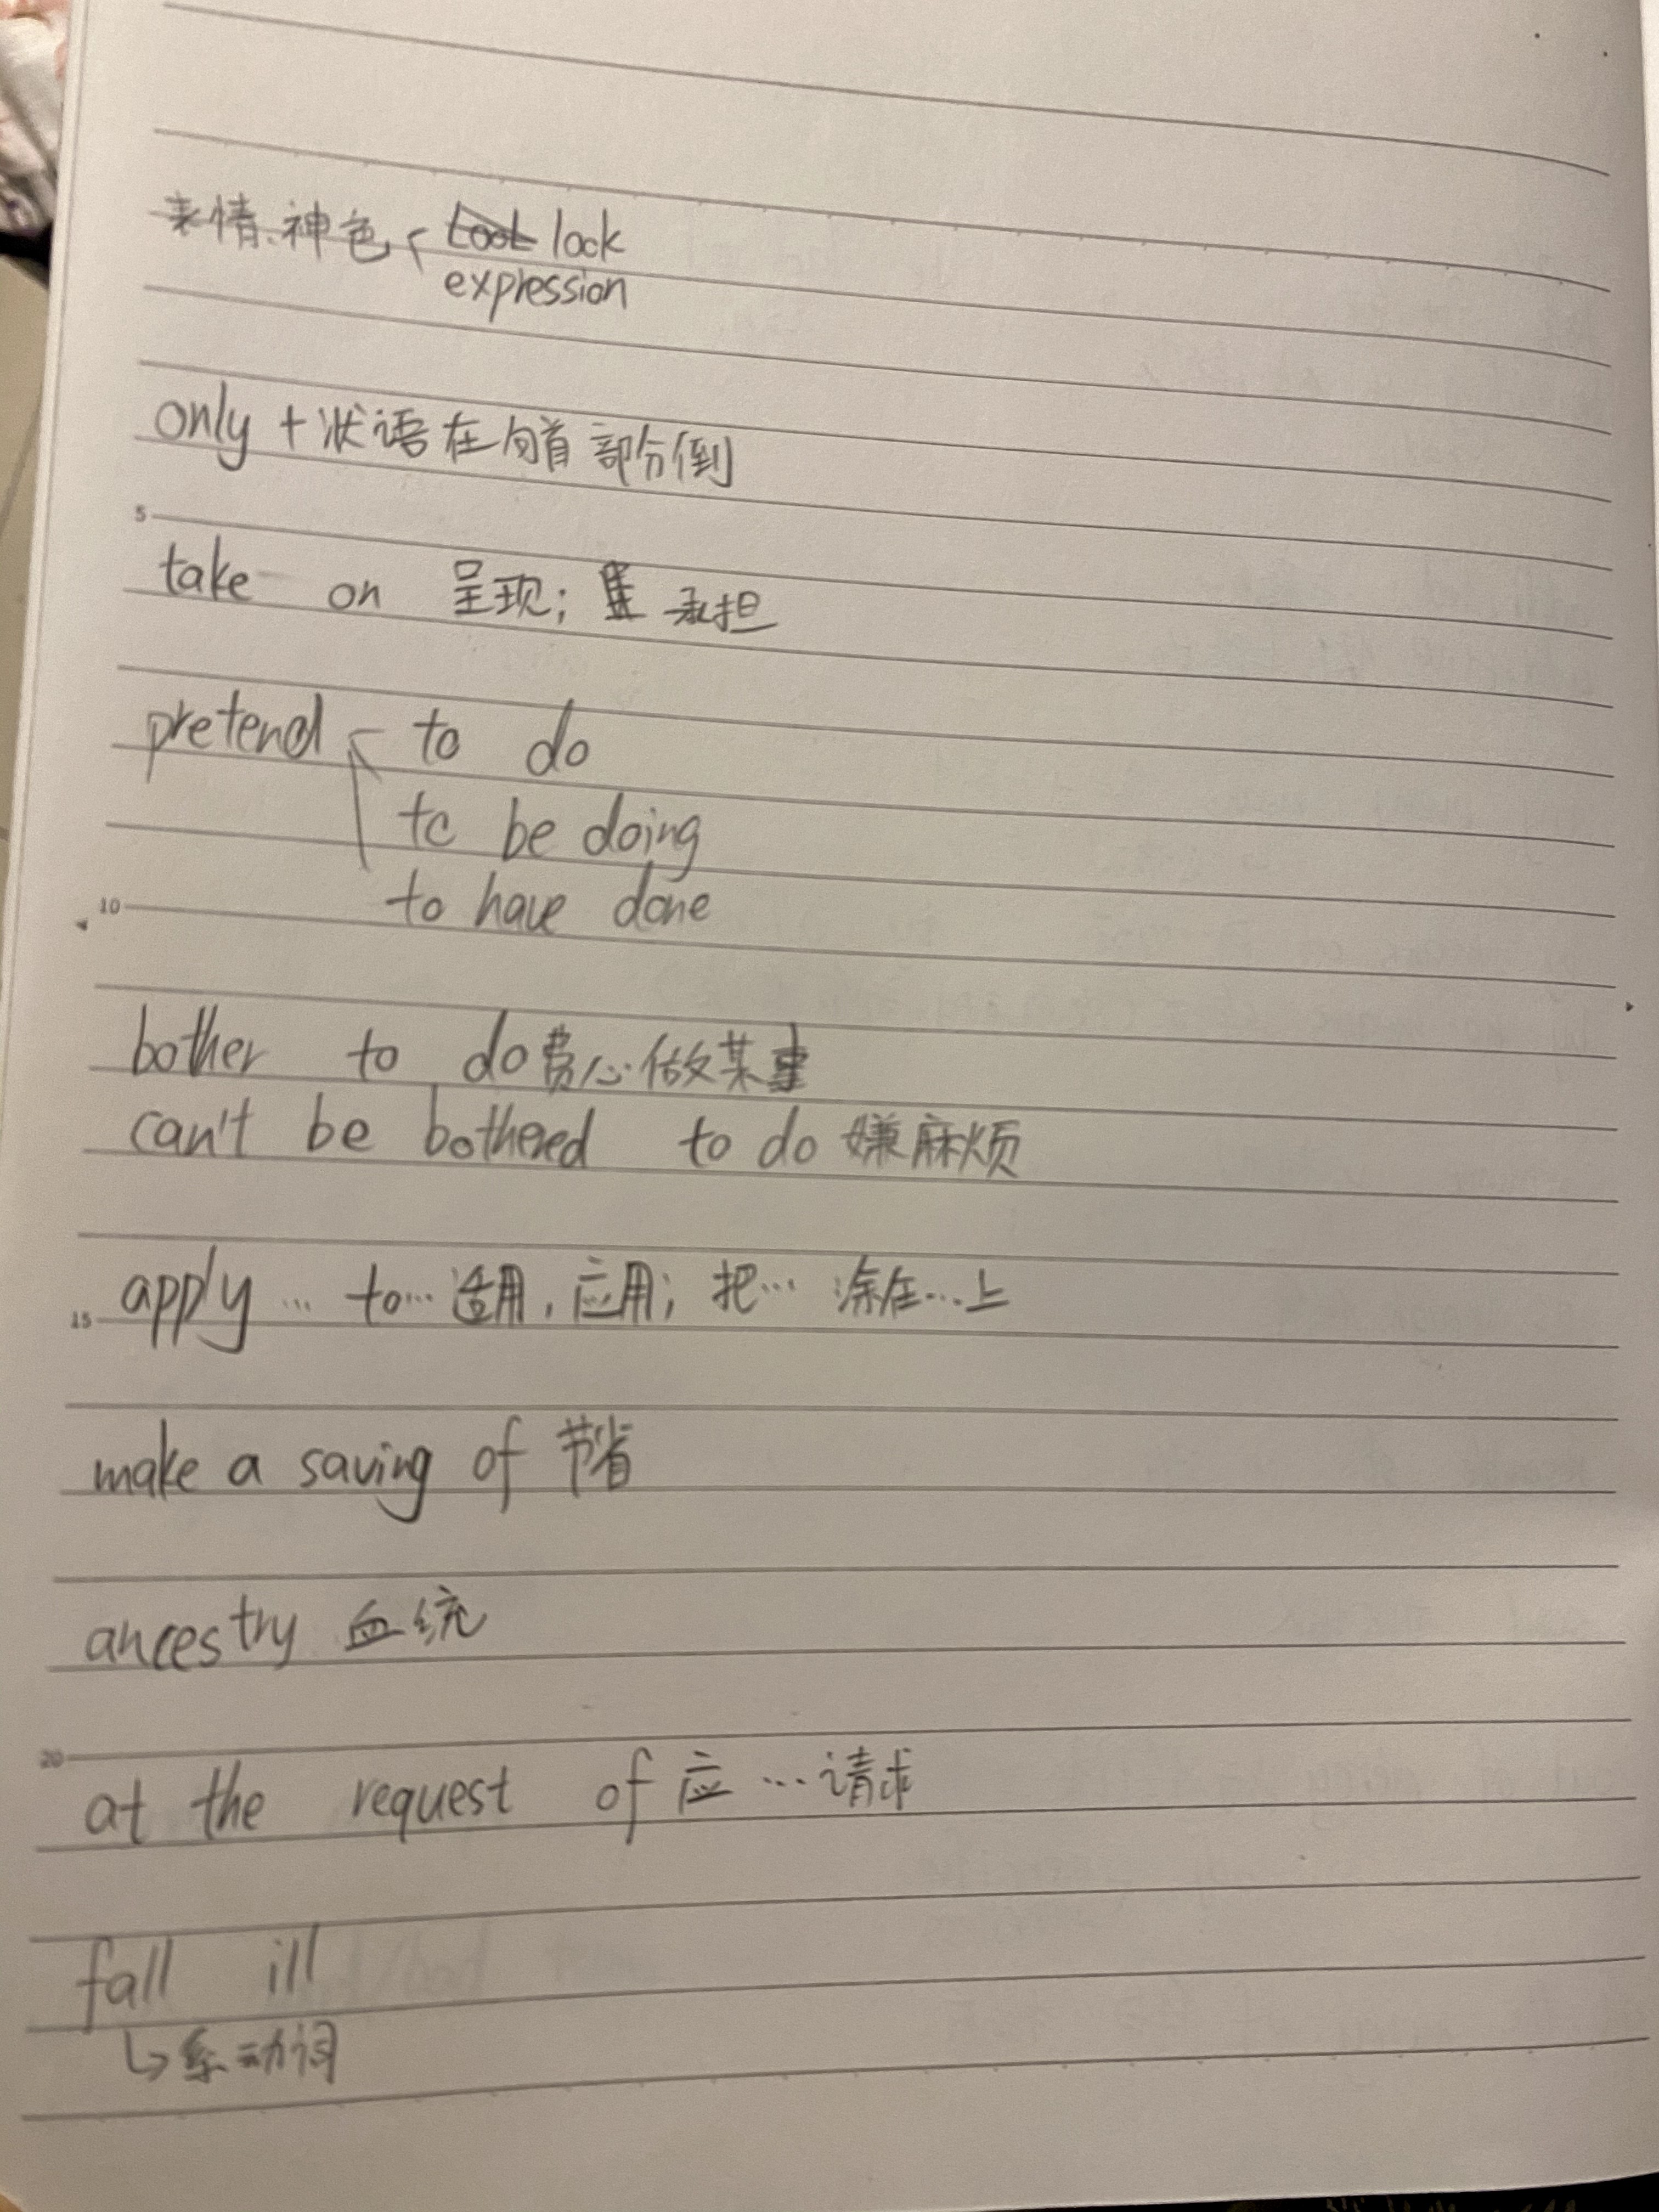 表情.神色 look
expression
only + 状语在句首 部分倒
5
take on 呈现; 承担
pretend to do
to be doing
10
to have done
bother to do 费心做某事
can't be bothered to do 嫌麻烦
15
apply … to… 适用, 应用; 把… 涂在…上
make a saving of 节省
ancestry 血统
20
at the request of 应…请求
fall ill
↳系动词